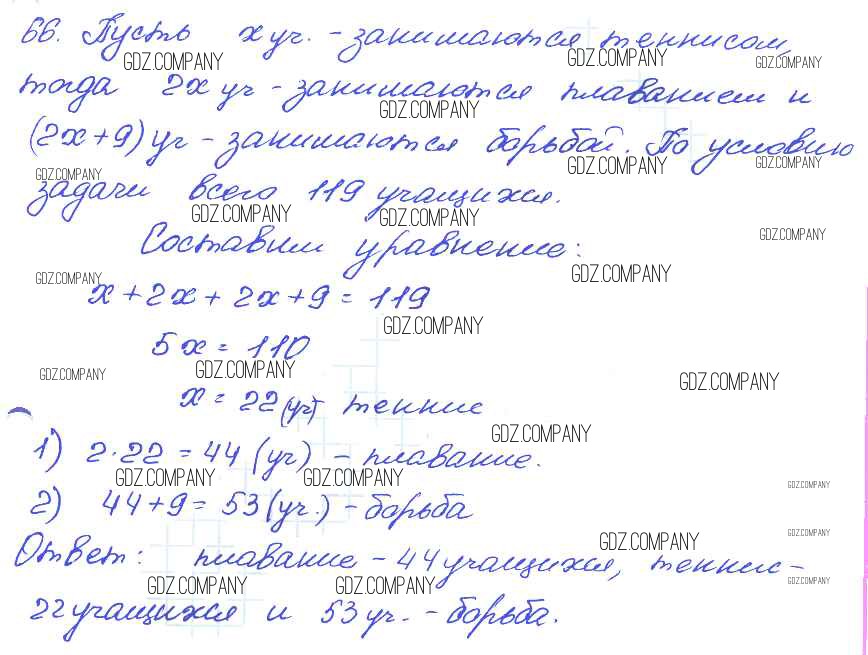 66. Пусть x уч. - занимаются теннисом,
GDZ.COMPANY GDZ.COMPANY GDZ.COMPANY
тогда 2x уч - занимаются плаванием и
GDZ.COMPANY
(2x+9) уч - занимаются борьбой. По условию
GDZ.COMPANY GDZ.COMPANY GDZ.COMPANY
задачи всего 119 учащихся.
GDZ.COMPANY GDZ.COMPANY GDZ.COMPANY
Составим уравнение:
GDZ.COMPANY GDZ.COMPANY
x + 2x + 2x + 9 = 119
GDZ.COMPANY
5x = 110
GDZ.COMPANY GDZ.COMPANY GDZ.COMPANY
x = 22 (уч) теннис
GDZ.COMPANY
1) 2·22 = 44 (уч) - плавание.
GDZ.COMPANY GDZ.COMPANY GDZ.COMPANY
2) 44+9 = 53 (уч.) - борьба
GDZ.COMPANY GDZ.COMPANY
Ответ: плавание - 44 учащихся, теннис -
GDZ.COMPANY GDZ.COMPANY GDZ.COMPANY
22 учащихся и 53 уч. - борьба.